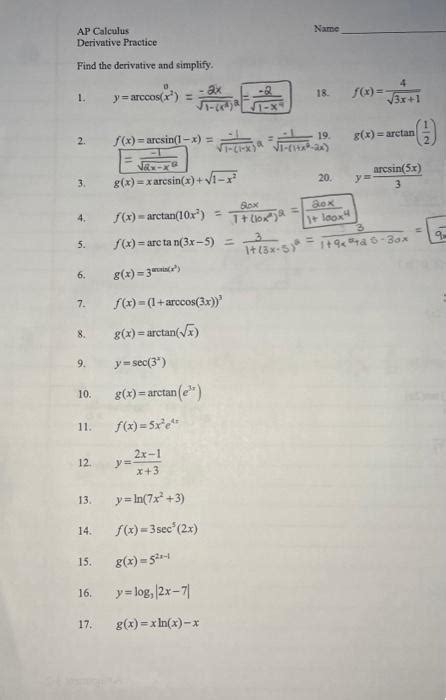 AP Calculus
Name
Derivative Practice
Find the derivative and simplify.
1. y = arccos(x²) = -2x/√(1-(x²)²) = -2/√(1-x⁴)
18. f(x) = 4/√(3x+1)
2. f(x) = arcsin(1-x) = -1/√(1-(1-x)²) = -1/√(1-(1+x²-2x))
= -1/√(2x-x²)
19. g(x) = arctan(1/2)
3. g(x) = x arcsin(x) + √(1-x²)
20. y = arcsin(5x)/3
4. f(x) = arctan(10x²) = 20x/(1+(10x²)²) = 20x/(1+100x⁴)
5. f(x) = arc ta n(3x-5) = 3/(1+(3x-5)²) = 3/(1+9x²+25-30x) =
6. g(x) = 3^(arcsin(x³))
7. f(x) = (1+arccos(3x))³
8. g(x) = arctan(√x)
9. y = sec(3ˣ)
10. g(x) = arctan(e³ˣ)
11. f(x) = 5x²e⁴ˣ
12. y = (2x-1)/(x+3)
13. y = ln(7x²+3)
14. f(x) = 3sec⁵(2x)
15. g(x) = 5^(2x-1)
16. y = log₃|2x-7|
17. g(x) = x ln(x) - x